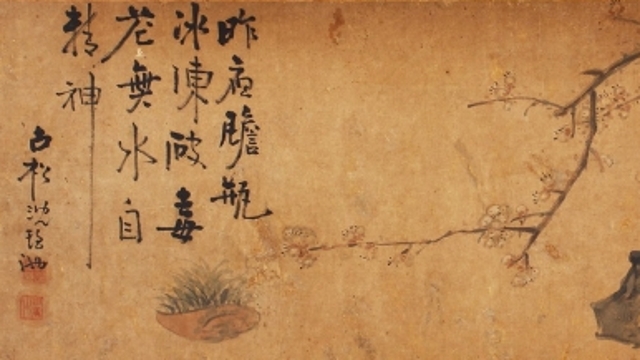 昨夜膽瓶
冰凍破梅
花無水自
精神
古松沈瑶池